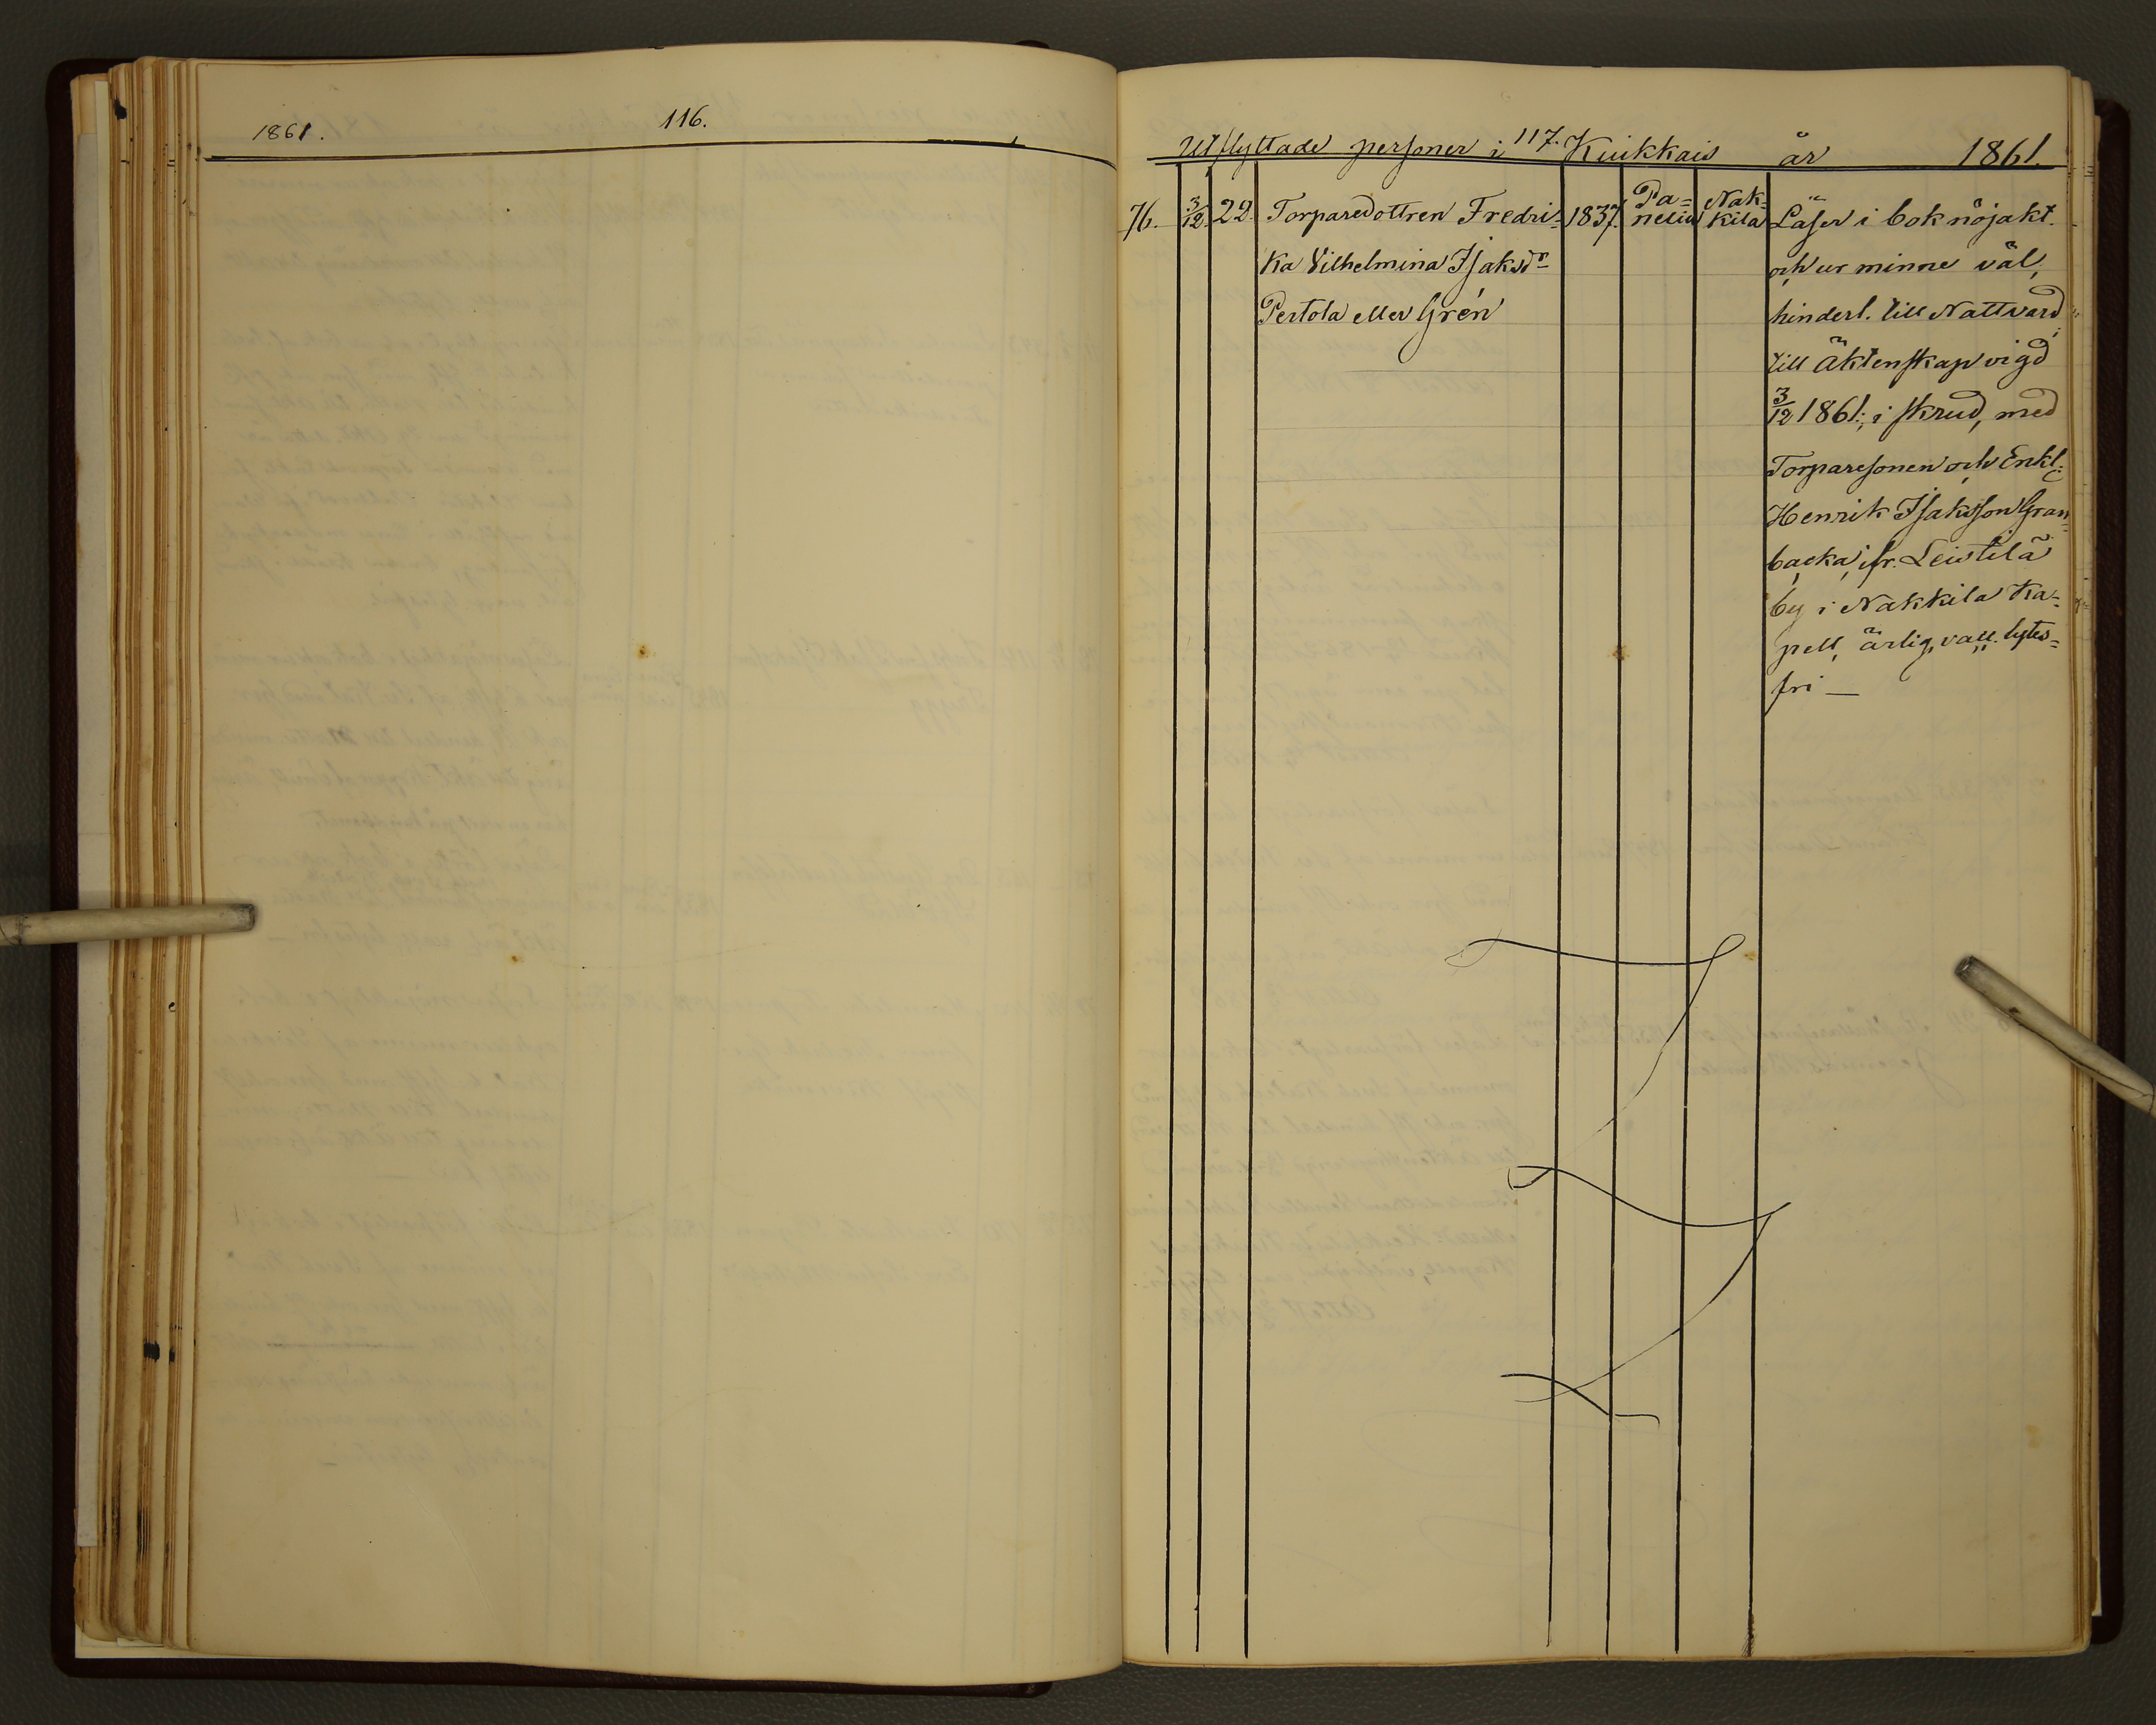 1861.
116.
117.
Utflyttade personer i Kiukkais år 1861.
76. 3/12. 22. Torparedottren Fredri= 1837. Pa= Nak=
nelia kila
ka Vilhelmina Isaksdr
Pertola eller Grén
Läser i bok nöjakt.
och ur minne väl,
hinderl. till Nattvard,
till äktenskap vigd
3/12 1861, i skrud, med
Torparesonen och Enkl:
Henrik Isaksson Gran=
backa, fr. Leistilä
by i Nakkila Ka=
pell, ärlig, vacc. lytes=
fri —